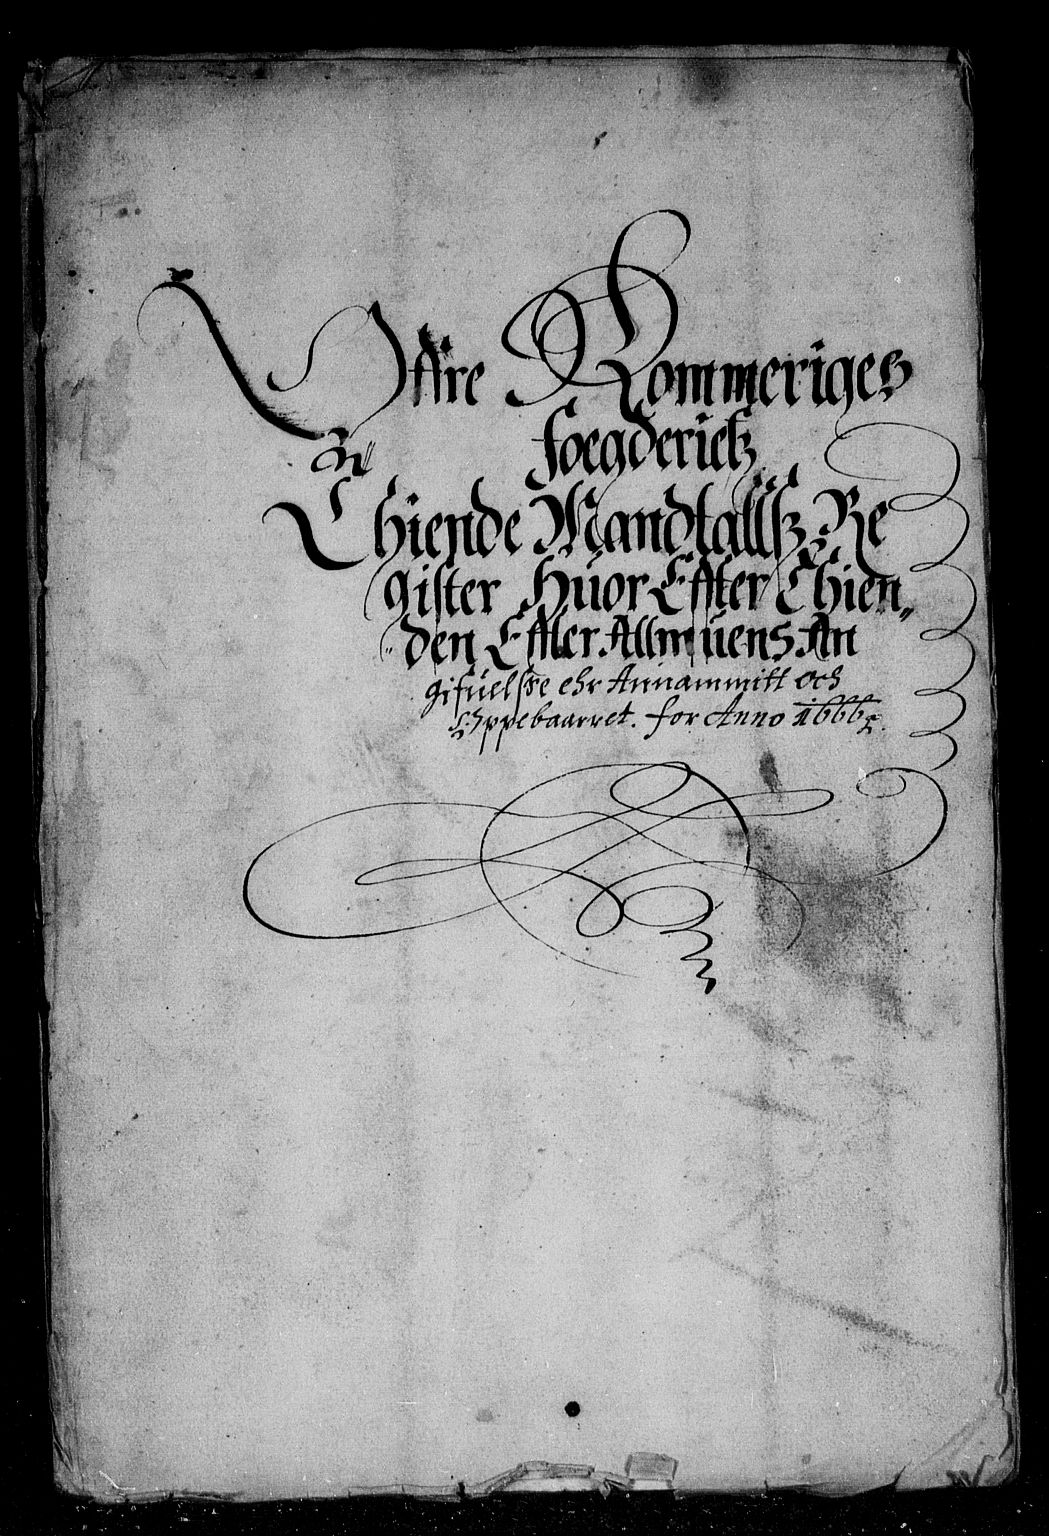 Øffre Rommeriges
foegderietz
Thiende Mandtallsz Re
gister Huor Effter Thien„
„den Effter Allmuens An
gifuelsse ehr Annammitt och
Oppebaarret. for Anno 1666